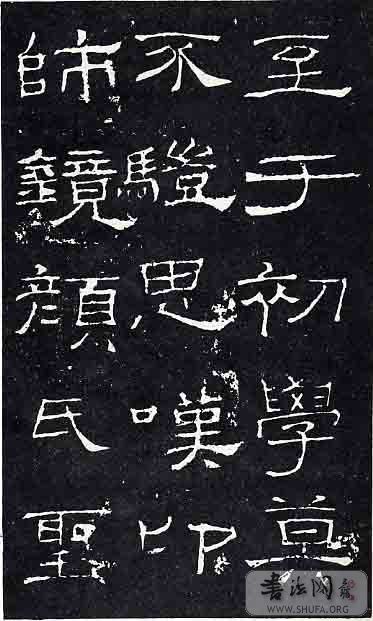 至于初學莫
不驥思嘆卬
師鏡顏氏聖
书法网
WWW.SHUFA.ORG